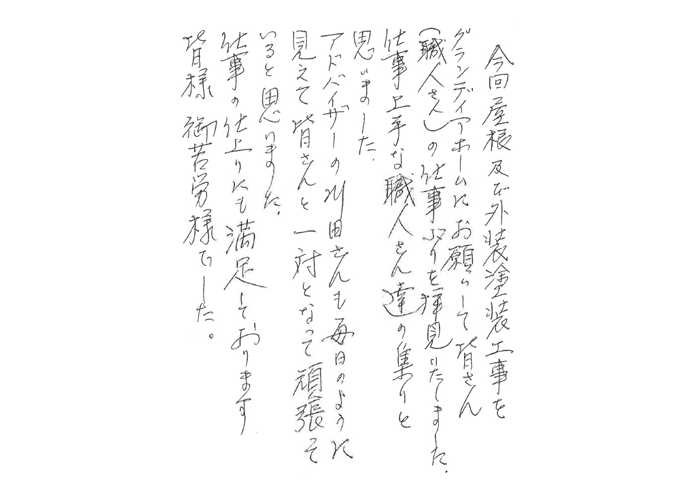 今回屋根及び外装塗装工事を
グランディアホームにお願いして皆さん
(職人さん)の仕事ぶりを拝見いたしました.
仕事上手な職人さん達の集りと
思いました.
アドバイザーの川田さんも毎日のように
見えて皆さんと一対となって頑張って
いると思いました.
仕事の仕上りにも満足しております
皆様御苦労様でした。